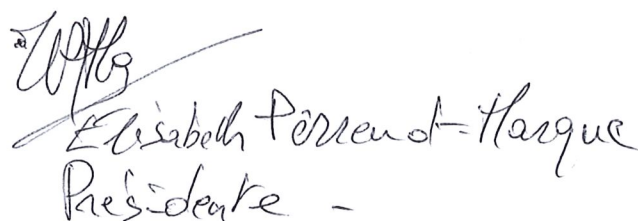 Elisabeth Perrenot-Marque
Présidente -